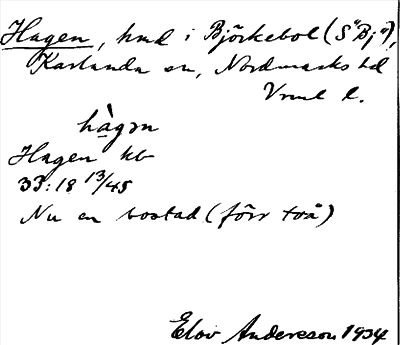 Hagen, hmd i Björkebol (S "Bj"),
Karlanda sn, Nordmarks hd
Vrml l.
hàgɔn
Hagen kb
33:18 13/45
Nu en bostad (förr två)
Elov Andersson 1934